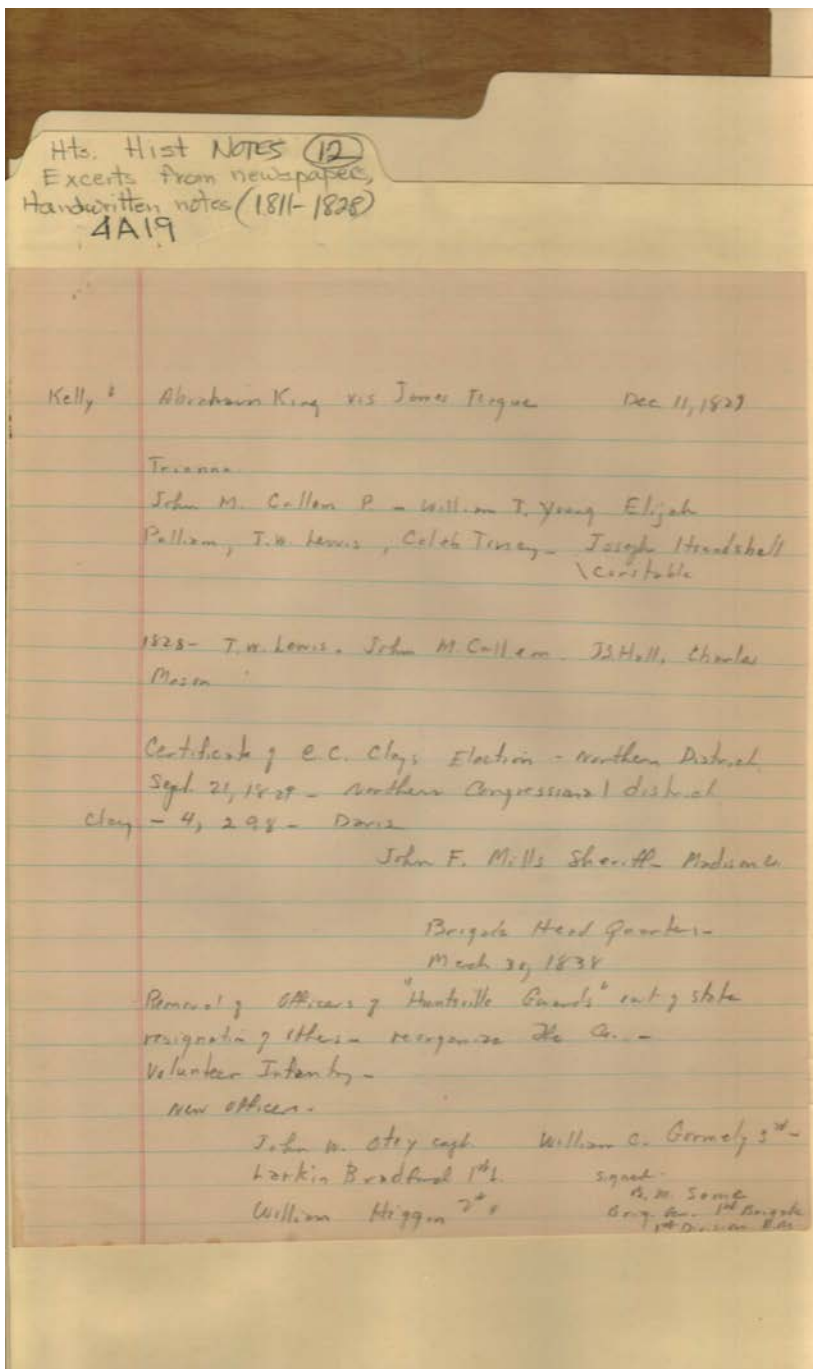 Hts. Hist NOTES (12)
Excerts from newspapers,
Handwritten notes (1811-1828)
4A19
Kelly's Abraham King vis James Teague Dec 11, 1829
Trianna
John M. Callen P. - William T. Young Elijah
Pulliam, T.W. Lewis, Caleb - Joseph
\ constable
1828 - T.W. Lewis. John M. Callen. Hall, Charles
Mason
Certificate of C.C. Clays Election - Northern District
Sept 21, 1829 - Northern Congressional district
Clay - 4,298 - Davis
John F. Mills Sheriff - Madison Co.
Brigade Head Quarters -
March 30, 1838
Removal of Officers of "Huntsville Guards" out of state
resignation of others - reorganize the Co. -
Volunteer Infantry -
New Officers -
John W. Otey capt. William C. Gormely 3rd -
Larkin Bradford 1st L. signed -
William Higgin 2nd " B.M.
Brig. Gen. 1st Brigade
1st Division